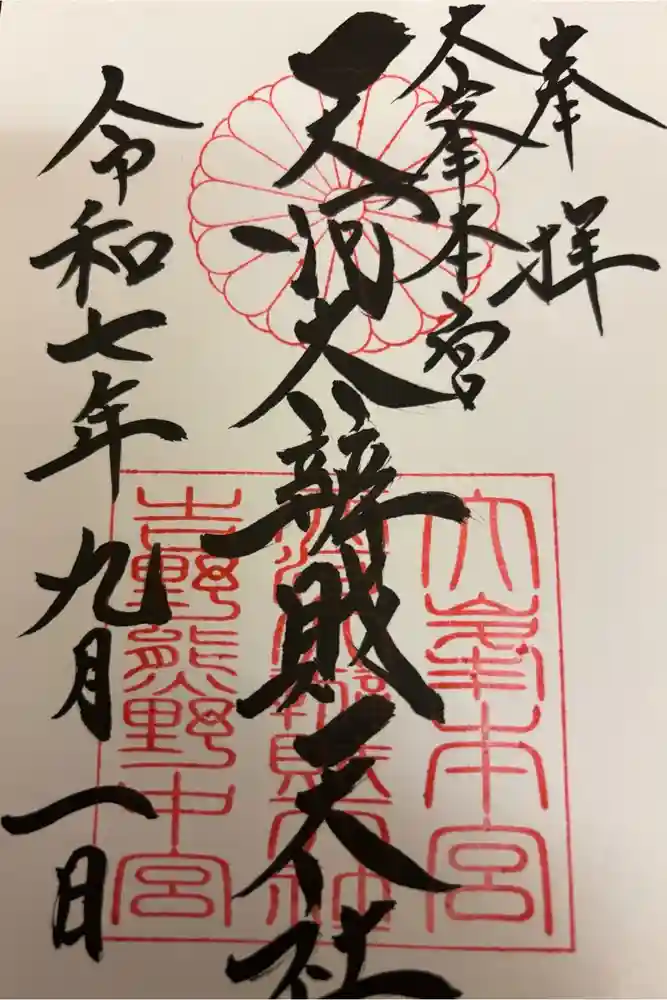 奉拝
大峯本宮
天河大辨財天社
令和七年九月一日
大峯本宮
吉野熊野中宮